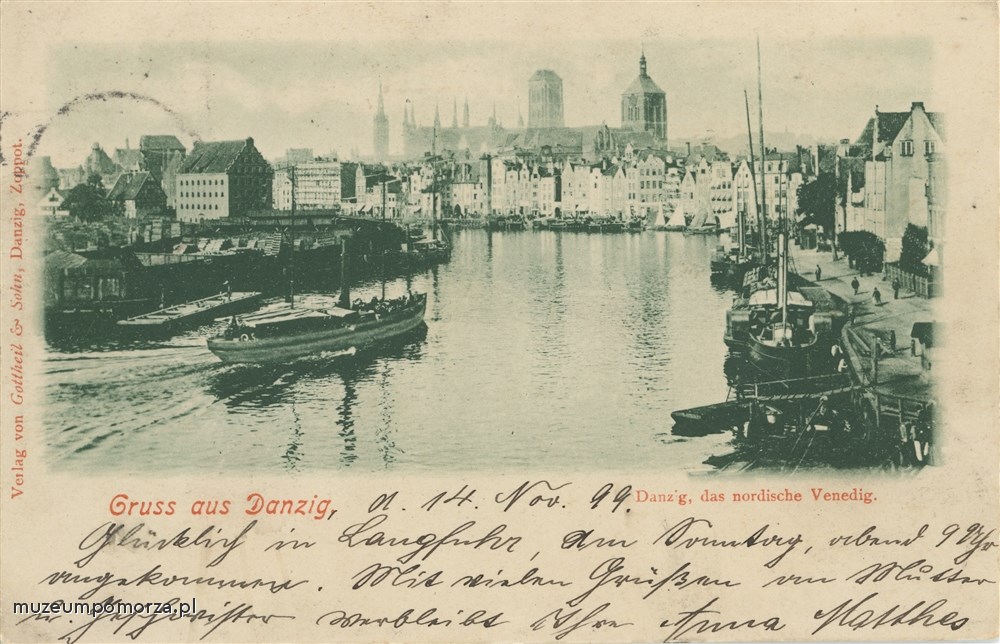 Verlag von Gottheil & Sohn, Danzig, Zoppot.
Gruss aus Danzig, d. 14. Nov. 99.
Danzig, das nordische Venedig.
Glücklich in Langfuhr, am Sonntag, abend 9 Uhr
angekommen. Mit vielen Grüßen an Mutter
u. Geschwister verbleibt Ihre Anna Matthes
muzeumpomorza.pl